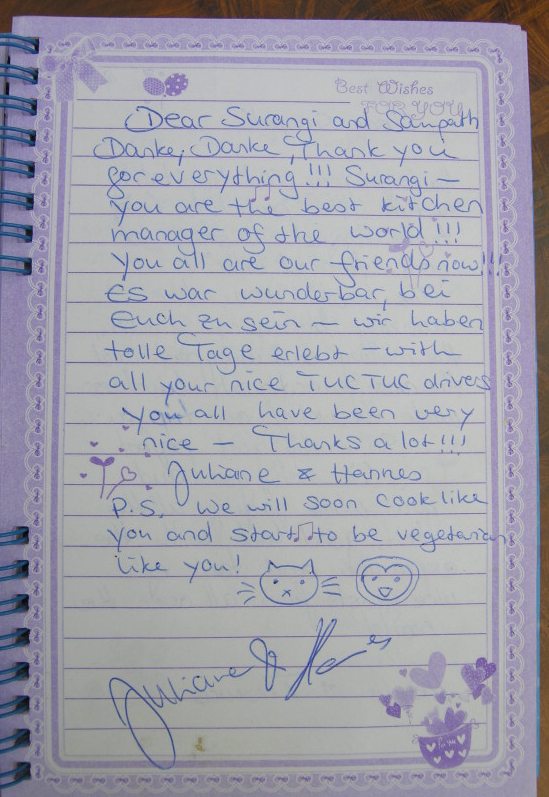 Best Wishes
FOR YOU
Dear Surangi and Sampath
Danke, Danke, Thank you
for everything!!! Surangi –
you are the best kitchen
manager of the world!!!
You all are our friends now!!!
Es war wunderbar, bei
euch zu sein – wir haben
tolle Tage erlebt – with
all your nice TUCTUC drivers
You all have been very
nice – Thanks a lot!!!
Juliane & Hannes
P.S. We will soon cook like
you and start to be vegetarian
like you!
Juliane &
for you